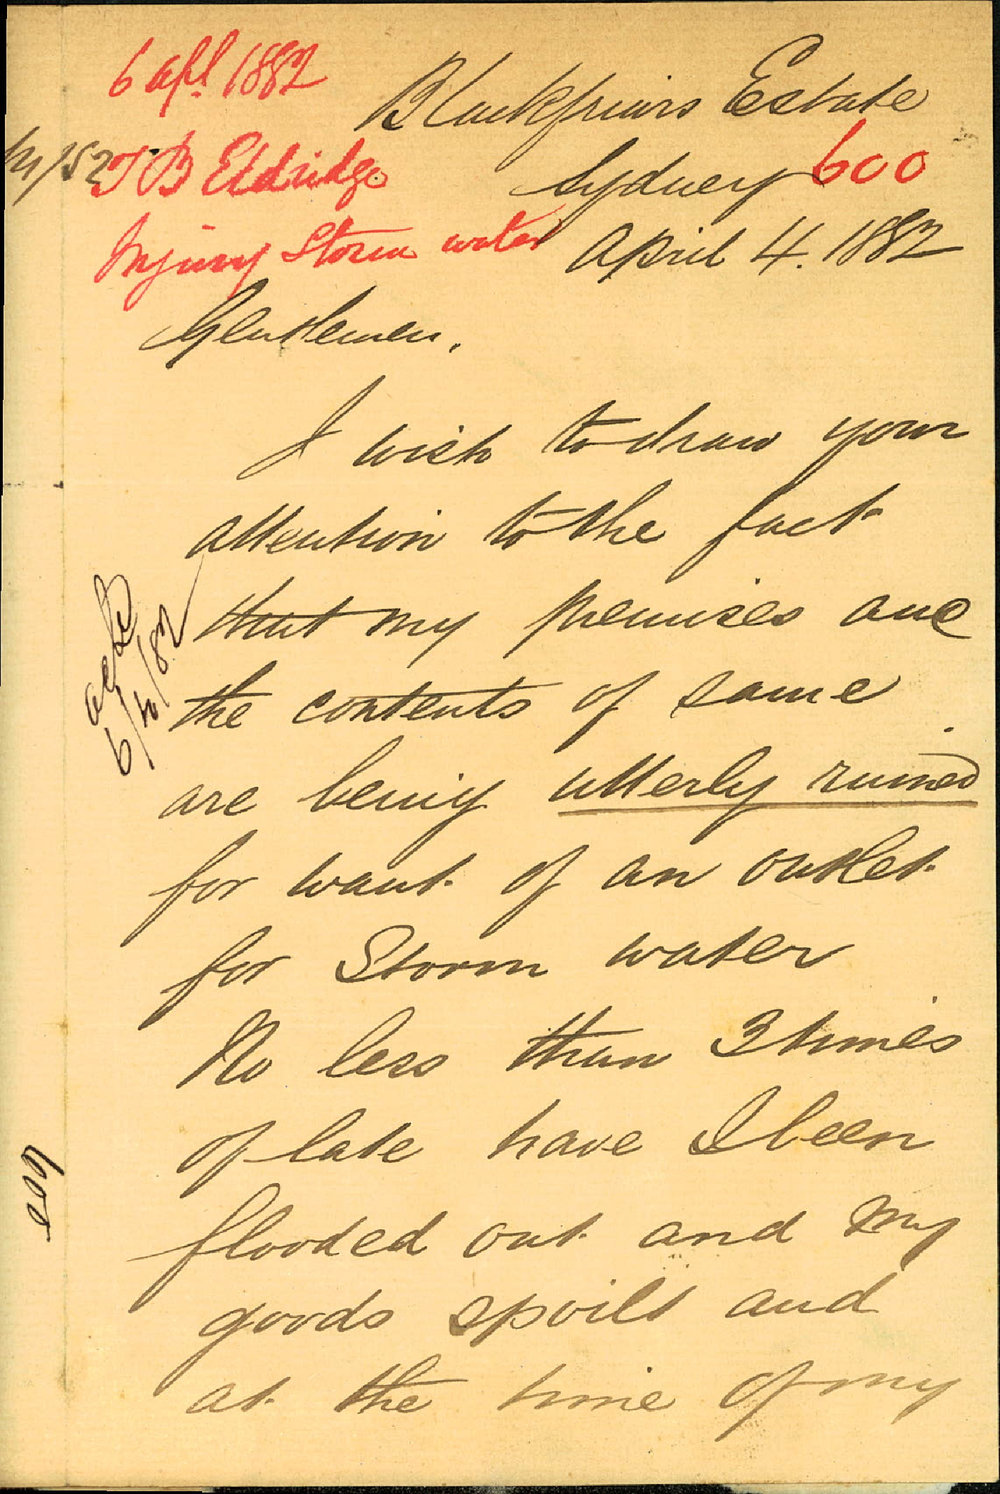 6 apl 1882
Blackfriars Estate
M/52 T B Eldridge
Sydney 600
Injury Storm water
April 4. 1882
Gentlemen.
I wish to draw your
attention to the fact
that my premises and
the contents of same
are being utterly ruined
for want of an outlet
for Storm water
No less than 3 times
of late have I been
flooded out and my
goods spoilt and
at the time of my
6/4/82
600